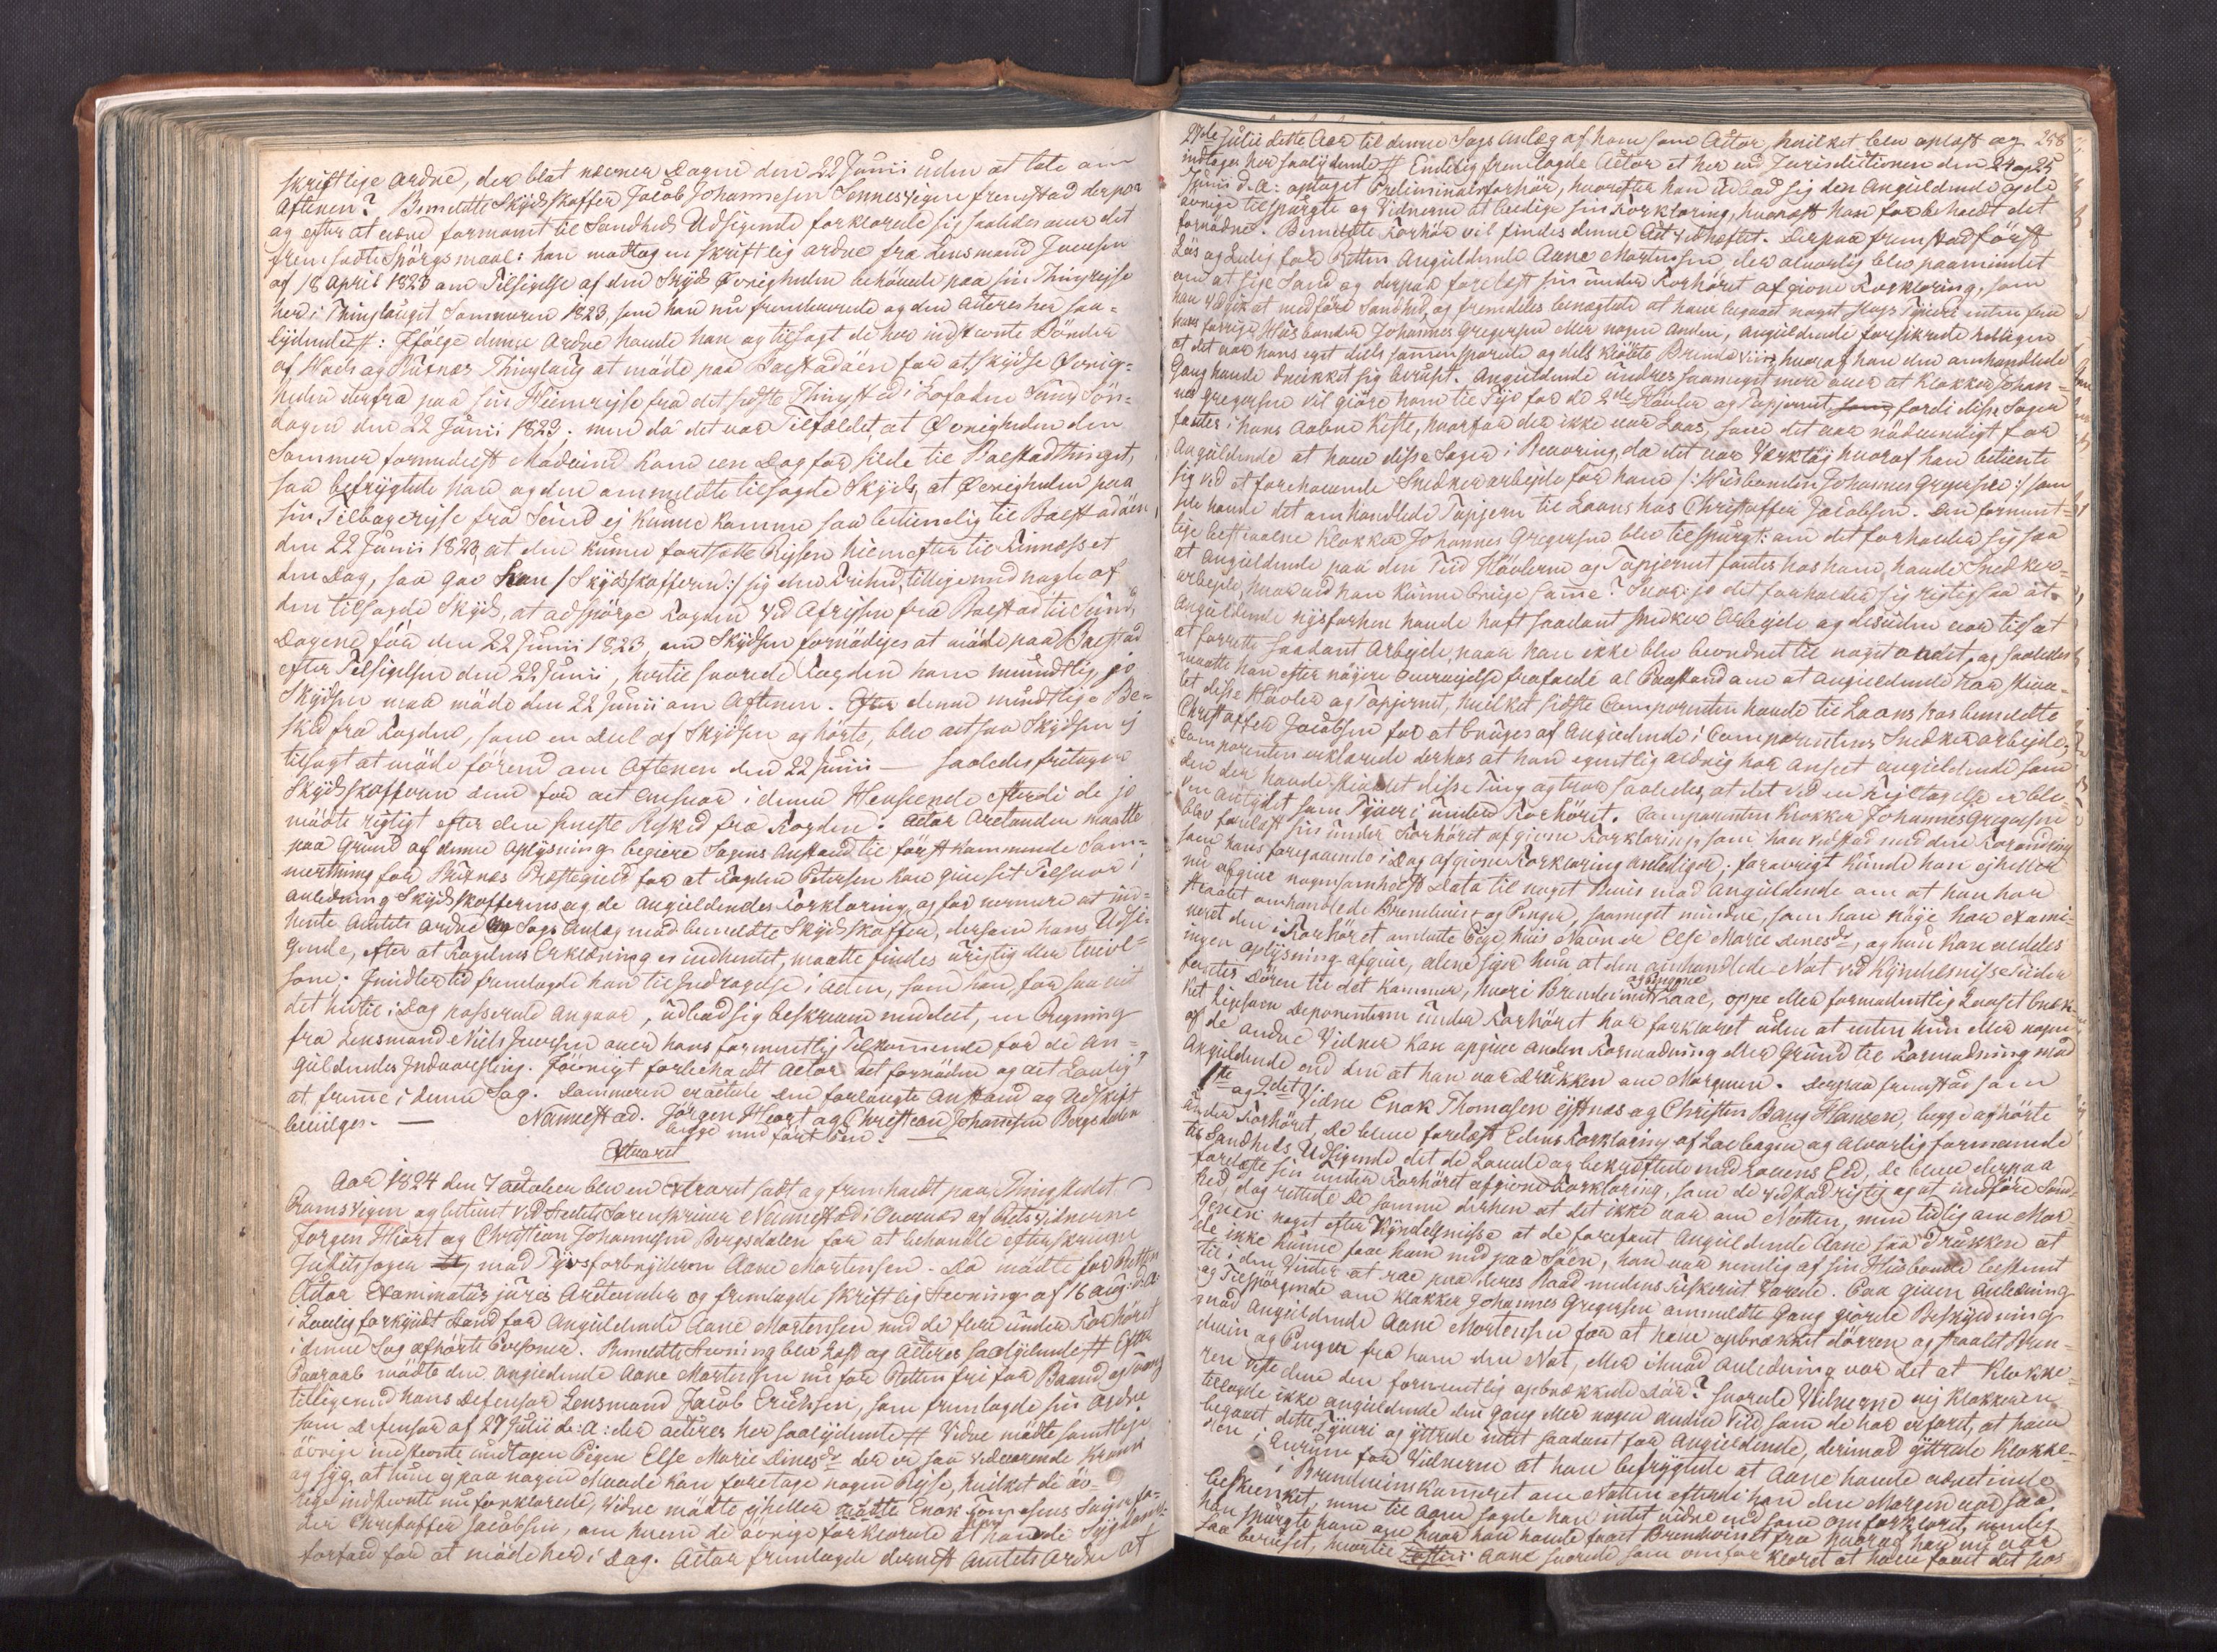 skriftlige Ordre, der blot nævner Dagen den 22 Junii uden at tale om
Aftenen? Bemeldte Skydsskaffer Jacob Johannesen Sennesvigen fremstod derpaa
og efter at være formanet til Sandheds Udsigende forklarede sig saaledes over det
fremsadte Spørgsmaal: han modtog en skriftlig Ordre fra Lensmand Jversen
af 18 April 1823 om Tilsigelse af den Skyds Øvrigheden behövede paa sin Thingrejse
her i Thinglauget Sommeren 1823, som han nu fremleverede og den acteres her saa-
lydende #: Ifølge denne Ordre havde han og tilsagt de her indstevnte Bönder
af Hoels og Buxnæs Thinglaug at møde paa Borstadöen for at skydse Øvrig-
heden derfra paa sin Hiemrejse fra det sidste Thingsted i Lofoden Sund Sön-
dagen den 22 Junii 1823; men da det var Tilfældet, at Øvrigheden den
Sommer formedelst Modvind kom een Dag for silde til Borstadthinget,
saa befrygtede han og den ommeldte tilsagde Skyds, at Øvrigheden paa
sin Tilbagerejse fra Sund ej kunne komme saa betimelig til Borstadöen,
den 22 Junii 1823, at den kunne fortsætte Rejsen hiemefter til
den Dag, saa gav han /:Skydsskafferen:/ sig den Frihed, tilligemed nogle af
den tilsagde Skyds, at adspörge Fogden ved Afrejsen fra Borstad til Sund,
Dagene för den 22 Junii 1823, om Skydsen fornödiges at møde paa Borstad
efter Tilsigelsen den 22 Junii, hertil svarede Fogden ham mundtlig, jo
Skydsen maa møde den 22 Junii om Aftenen. Efter denne mundtlige Be-
sked fra Fogden, som en Deel af Skydsen og hörte, blev altsaa Skydsen ej
tilsagt at møde förend om Aftenen den 22 Junii — saaledes fritager
Skydsskafferen dem for alt Ansvar i denne Henseende efterdi de jo
mödte rigtigt efter den seneste Besked fra Fogden. Actor Arctander maatte
paa Grund af denne Oplysning begiere Sagens Anstand til först kommende Som-
merthing for Buxnæs Præstegield for at Fogden Petersen kan giver sit Tilsvar i
anledning Skydsskafferens og de Angieldendes Forklaring, og for nermere at ind-
hente Amtets Ordre om Sags Anlæg mod bemeldte Skydsskaffer, dersom hans Udsi-
gende, efter at Fogdens Erklæring er indhentet, maatte findes urigtig eller tvivl-
som. Imidlertid fremlagde han til Indtagelse i Acten, som han, for saavidt
det hertil i Dag passerede angaar, udbad sig beskreven meddelt, en Regning
fra Lensmand Niels Jversen over hans formentlig Tilkommende for de An-
gieldendes Indvarsling. Iövrigt forbeholdt Actor det fornödne og alt Lovligt
at fremme i denne Sag. Dommeren eragtede den forlangte Anstand og Udskrift
bevilges. — Nannestad. Jörgen Hiort og Christian Johannesen Bergsdalen
begge med fört Pen.
Extraret
Aar 1824 den 7 October blev en Extraret sadt og fremholdt paa Thingstedet
Ramsvigen og betient ved Stedets Sorenskriver Nannestad i Overvær af Retsvidnerne
Jørgen Hiort og Christian Johannesen Bergsdalen for at behandle efterskrevne
Justitssager mod Tyvsforbryderen Aane Mortensen. Da mödte for Retten
Actor Examinatus juris Arctander og fremlagde skriftlig Stevning af 16 Aug: d: A:
i Lovlig forkyndt Stand for Angieldende Aane Mortensen med de flere under Forhöret
i denne Sag afhörte Personer. Bemeldte Stevning blev læst og acteres saalydende # Efter
Paaraab mödte den Angieldende Aane Mortensen nu for Retten fri for Baand og Tvang
tilligemed hans Defensor Lensmand Jacob Erichsen, som fremlagde sin Ordre
som Defensor af 27 Julii d: A: der acteres her saalydende # Videre mödte samtlige
övrige indstevnte undtagen Pigen Else Marie Linesdr der er saa vedvarende krank
og syg, at hun ej paa nogen Maade kan foretage nogen Rejse, hvilket de öv-
rige indstevnte nu forklarede, videre mödte ejheller Enok Tomesens
Christoffer Jacobsen, om hvem de övrige forklarede at have Sygdoms-
forfald for at møde her i Dag. Actor fremlagde dernest Amtets Ordre af
258
27de Julii dette Aar til denne Sags Anlæg af ham som Actor, hvilket blev oplæst og
indtages her saalydende # Endelig fremlagde Actor et her ved Jurisdictionen den 24 og 25
Junii d. A: optaget Præliminairforhör, hvorefter han udbad sig den Angieldende og de
övrige tilspurgte og Vidnerne at beedige sin Forklaring, hvornæst han forbeholdt det
fornödne. Bemeldte Forhör vil findes denne Act vedhæftet. Derpaa fremstod först
Lös og Ledig for Retten Angieldende Aane Mortensen der alvorlig blev paamindet
om at sige Sand og derpaa forelæst sin under Forhöret afgivne Forklaring, som
han vedgik at medföre Sandhed, og fremdeles benægtede at have begaaet noget Slags Tyverie enten fra
hans forrige Huusbonde Johannes Gregersen eller nogen Anden, angieldende forsikrede
at det var hans eget deels sammensparede og dels kiöbte Brendeviin, hvoraf han den omhandlede
Gang havde drukket sig beruset. Angieldende undres saameget mere over at Klokker Johan-
nes Gregersen vil giöre ham til Tyv for de 2de Hövler og Tapjernet fordi disse Sager
fantes i hans aabne Kiste, hvorfor der ikke var Laas, som det var nödvendigt for
Angieldende at have disse Sager i Bevaring, da det var Værktøj hvoraf han betiente
sig ved at forehavende Snedkerarbejde for ham /:Huusbonden Johannes Gregersen:/ som
selv havde det omhandlede Tapjern til Laans hos Christoffer Jacobsen. Den forment-
lige bestiaalne Klokker Johannes Gregersen blev tilspurgt: om det forholder sig saa
at Angieldende paa den Tid Hövlerne og Tapjernet fantes hos ham, havde Snedker-
arbejde, hvorved han kunne bruge samme? Svar: jo det forholder sig rigtig saa at
Angieldende havde haft saadant Snedker Arbejde og desuden var tilsat
at forrette saadant Arbejde, naar han ikke blev beordret til noget andet, og saaledes
maatte han efter nöjere Overvejelse frafalde al Paastand om at Angieldende har stiaa-
let disse Hövler og Tapjernet, hvilket sidste Comparenten havde til Laans hos bemeldte
Christoffer Jacobsen for at bruges af Angieldende i Comparentens Snedkerarbejde,
Comparenten erklærede derhos at han egentlig aldrig har anseet angieldende som
den der havde stiaalet disse Ting og troer saaledes, at det ved en Fejltagelse er ble-
ven antydet som Tyveri under Forhöret. Comparenten Klokker Johannes Gregersen
blev forelæst sin under Forhöret afgivne Forklaring, som han vedstod med den Forandring
som hans foregaaende i Dag afgivne Forklaring anledige; foravrigt kunde han ejheller
nu afgive nogensomhelst Data til noget Beviis mod Angieldende om at han har
stiaalet omhandlede Brendeviin og Penger, saameget mindre, som han nöje har exami-
neret den i Forhöret omtalte Pige, hvis Navn er Else Marie Linesdr, og hun kan aldeles
ingen Oplysning afgive, alene siger hun at den omhandlede Nat ved Kyndelsmisse Tider
fantes Dören til det Kammer, hvori Brendevinet og Pengene laae, oppe eller formodentlig Laaset brækk-
ket ligesom Deponenten under Forhöret har forklaret uden at enten hun eller nogen
af de andre Vidner kan opgive anden Formodning eller Grund til Formodning mod
Angieldende end den at han var drukken om Morgenen. Derpaa fremstod som
1ste og 2det Vidne Enok Thomasen Ystnæs og Christen Bang Hansen, begge afhörte
under Forhöret. De bleve forelæst Edens Forklaring af Lovbogen og alvorlig formanede
til Sandheds Udsigende det de lovede og bekræftede med Lovens Eed. De bleve derpaa
forelæste sin under Forhöret afgivne Forklaring, som de vedstod rigtig og at medföre Sand-
hed, dog rettede de samme derhen at det ikke var om Natten, men tidlig om Mor-
genen noget efter Kyndelsmisse at de forefant Angieldende Aane saa drukken at
de ikke kunne faae ham med paa Söen, han var nemlig af sin Huusbonde bestemt
til i den Vinter at roe paa deres Baad medens Fiskeriet varede. Paa given Anledning
og Tilspörgende om Klokker Johannes Gregersen ommeldte Gang giorde Beskyldning
mod Angieldende Aane Mortensen for at have opbrækket Dörren og stiaalet Bren-
deviin og Penger fra ham den Nat, eller i hvad Anledning var det at Klokke-
ren viste dem den formentlig opbrækkede Dör? svarede Vidnerne nej Klokkeren
tillagde ikke angieldende den Gang eller nogen anden Tiid, som de har erfaret, at have
begaaet dette Tyveri og yttrede intet saadant for Angieldende, derimod yttrede Klokke-
ren i Enrum for Vidnerne at han befrygtede at Aane havde været inde
i Brendeviinskameret om Natten efterdi han den Morgen var saa
beskienket, men til Aane sagde han intet videre end som omforklaret, nemlig
han spurgte ham om hvor han havde faaet Brendevinet fra hvoraf han nu var
saa beruset, hvortil Aane svarede som omforklaret at have faaet det hos